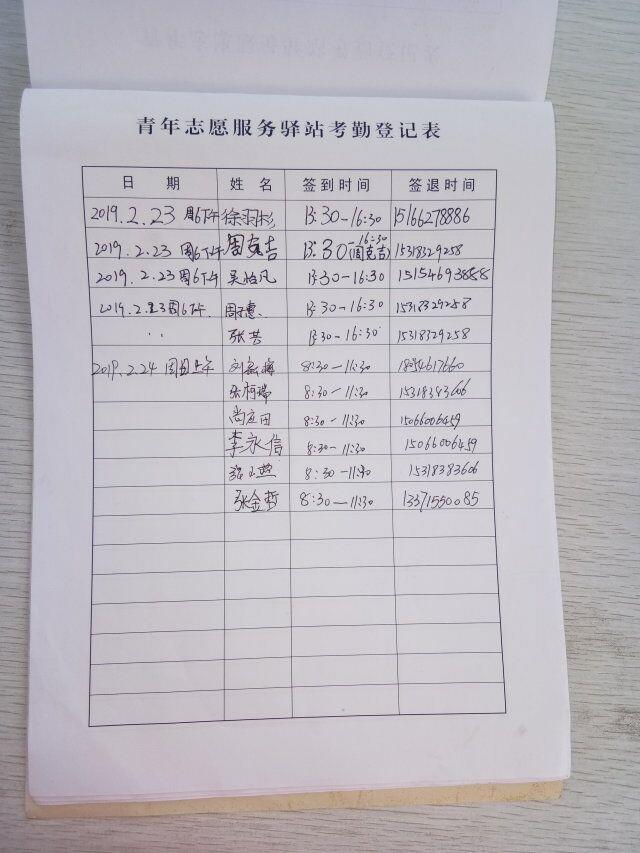 青年志愿服务驿站考勤登记表
日 期 姓 名 签到时间 签退时间
2019.2.23 周6下午 徐羽杉 13:30-16:30 15166278886
2019.2.23 周6下午 周克吉 13:30-16:30 (周克吉) 15318329258
2019.2.23 周6下午 吴怡凡 13:30-16:30 15154693888
2019.2.23 周6下午. 周子惠 13:30-16:30 15318329258
.. 张芸 13:30-16:30 15318329258
2019.2.24 周日上午 8:30-11:30 18254617660
张柯瑞 8:30-11:30 15318383606
尚应田 8:30-11:30 15066006459
李永信 8:30-11:30 15066006459
8:30-11:30 15318383606
张金哲 8:30-11:30 13371550085